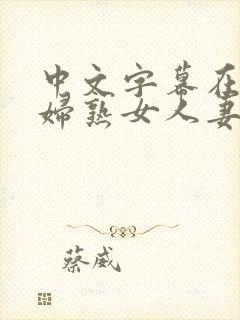 中文字幕在
婦熟女人妻
蔡威